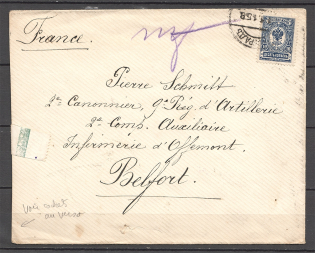 France.
Pierre Schmitt
2e Canonnier, 9e Rég. d'Artillerie
2e Coms. Auxiliaire
Infirmerie d'Offemont.
Belfort.
Voir cachet
au verso